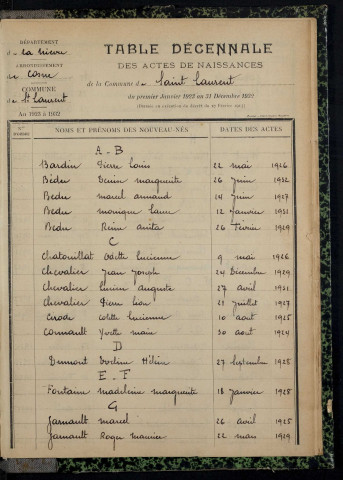 DÉPARTEMENT
de la Nièvre
ARRONDISSEMENT
de Cosne
COMMUNE
de St Laurent
An 1923 à 1932
TABLE DÉCENNALE
DES ACTES DE NAISSANCES
de la Commune de Saint Laurent
du premier Janvier 1923 au 31 Décembre 1932
NOMS ET PRÉNOMS DES NOUVEAU-NÉS DATES DES ACTES
A - B
Bardin Pierre Louis 22 mai 1926
Bedu Denise marguerite 26 Juin 1932
Bedu marcel armand 14 Juin 1927
Bedu monique 12 Janvier 1931
Bedu Reine anita 26 Février 1929
C
Chatouillat Odette Lucienne 9 mai 1926
Chevalier Jean Joseph 24 Décembre 1929
Chevalier Lucien auguste 27 avril 1931
Chevalier Pierre Léon 21 Juillet 1927
Colette Lucienne 10 août 1925
Yvette 30 août 1924
D
Dumont Eveline Hélène 27 Septembre 1925
E - F
Fontaine madeleine marguerite 18 Janvier 1925
G
Jarnault marcel 26 avril 1925
Jarnault Roger maurice 22 mars 1929